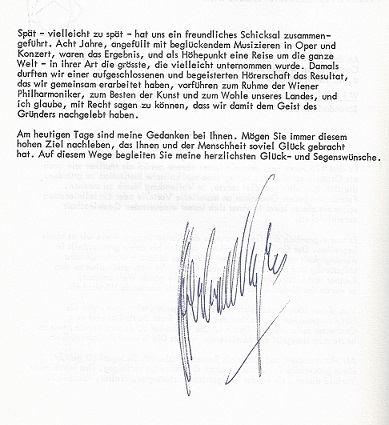 Spät - vielleicht zu spät - hat uns ein freundliches Schicksal zusammen-
geführt. Acht Jahre, angefüllt mit beglückendem Musizieren in Oper und
Konzert, waren das Ergebnis, und als Höhepunkt eine Reise um die ganze
Welt - in ihrer Art die grösste, die vielleicht unternommen wurde. Damals
durften wir einer aufgeschlossenen und begeisterten Hörerschaft das Resultat,
das wir gemeinsam erarbeitet haben, vorführen zum Ruhme der Wiener
Philharmoniker, zum Besten der Kunst und zum Wohle unseres Landes, und
ich glaube, mit Recht sagen zu können, dass wir damit dem Geist des
Gründers nachgelebt haben.
Am heutigen Tage sind meine Gedanken bei Ihnen. Mögen Sie immer diesem
hohen Ziel nachleben, das Ihnen und der Menschheit soviel Glück gebracht
hat. Auf diesem Wege begleiten Sie meine herzlichsten Glück- und Segenswünsche.